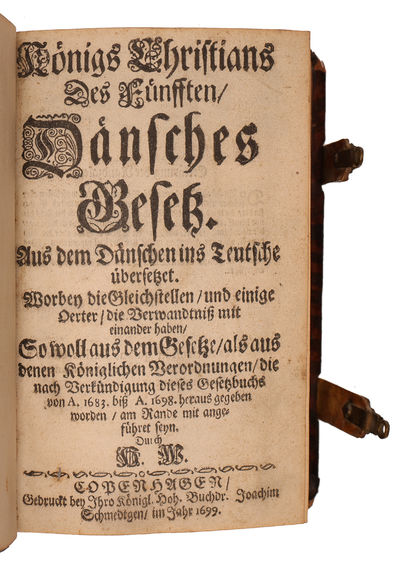 Königs Christians
Des Fünfften/
Dänsches
Gesetz.
Aus dem Dänschen ins Teutsche
übersetzet.
Worbey die Gleichstellen/und einige
Oerter/die Verwandtniß mit
einander haben/
So woll aus dem Gesetze/als aus
denen Königlichen Verordnungen/die
nach Verkündigung dieses Gesetzbuchs
von A. 1683. biß A. 1698. heraus gegeben
worden/am Rande mit ange-
führet seyn.
Durch
H. W.
COPENHAGEN/
Gedruckt bey Ihro Königl. Hoh. Buchdr. Joachim
Schmedtgen/im Jahr 1699.